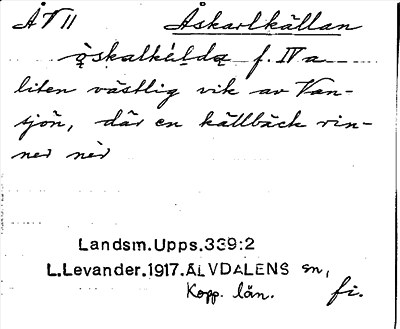 ÅT 11 Åskarlkällan
f. IV a
liten västlig vik av Van-
sjön, där en källbäck rin-
ner nèr
Landsm.Upps.339:2
L.Levander.1917.ÄLVDALENS sn,
Kopp. län. fi.